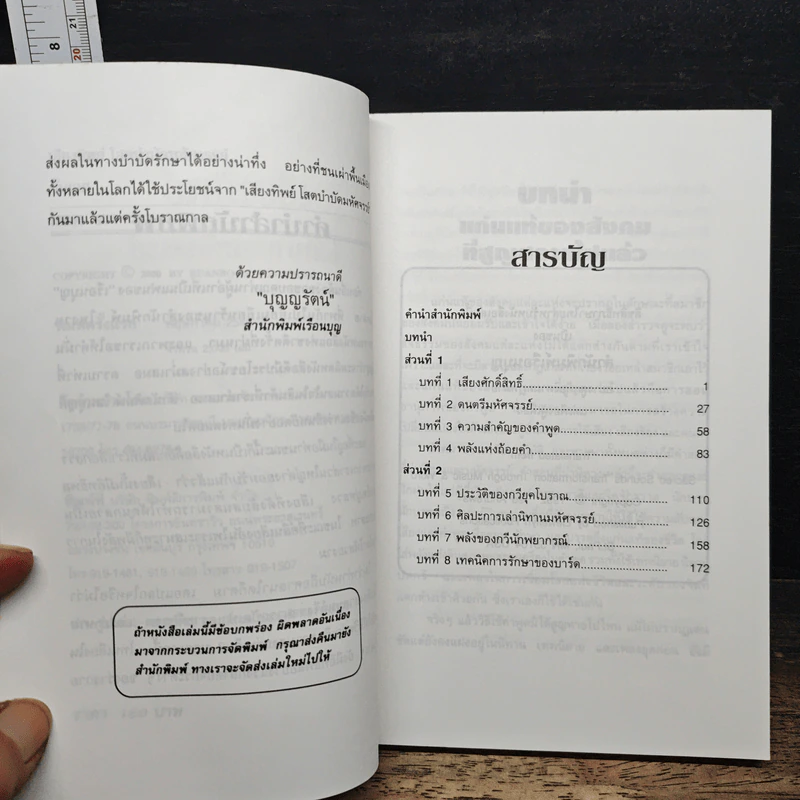 8
21
20
ส่งผลในทางบำบัดรักษาได้อย่างน่าทึ่ง อย่างที่ชนเผ่าพื้นเมือง
ทั้งหลายในโลกได้ใช้ประโยชน์จาก "เสียงทิพย์ โสตบำบัดมหัศจรรย์
กันมาแล้วแต่ครั้งโบราณกาล
ด้วยความปรารถนาดี
"บุญญรัตน์"
สำนักพิมพ์เรือนบุญ
ถ้าหนังสือเล่มนี้มีข้อบกพร่อง ผิดพลาดอันเนื่อง
มาจากกระบวนการจัดพิมพ์ กรุณาส่งคืนมายัง
สำนักพิมพ์ ทางเราจะจัดส่งเล่มใหม่ไปให้
สารบัญ
คำนำสำนักพิมพ์
บทนำ
ส่วนที่ 1
บทที่ 1 เสียงศักดิ์สิทธิ์ 1
บทที่ 2 ดนตรีมหัศจรรย์ 27
บทที่ 3 ความสำคัญของคำพูด 58
บทที่ 4 พลังแห่งถ้อยคำ 83
ส่วนที่ 2
บทที่ 5 ประวัติของกวียุคโบราณ 110
บทที่ 6 ศิลปะการเล่านิทานมหัศจรรย์ 126
บทที่ 7 พลังของกวีนักพยากรณ์ 158
บทที่ 8 เทคนิคการรักษาของบาร์ด 172